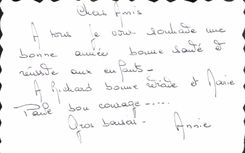 Chers Amis
A tous je vous souhaite une
bonne année bonne santé et
réussite aux enfants.
A Richard bonne retraite et Marie
Paule bon courage.....
Gros baisers. Annie